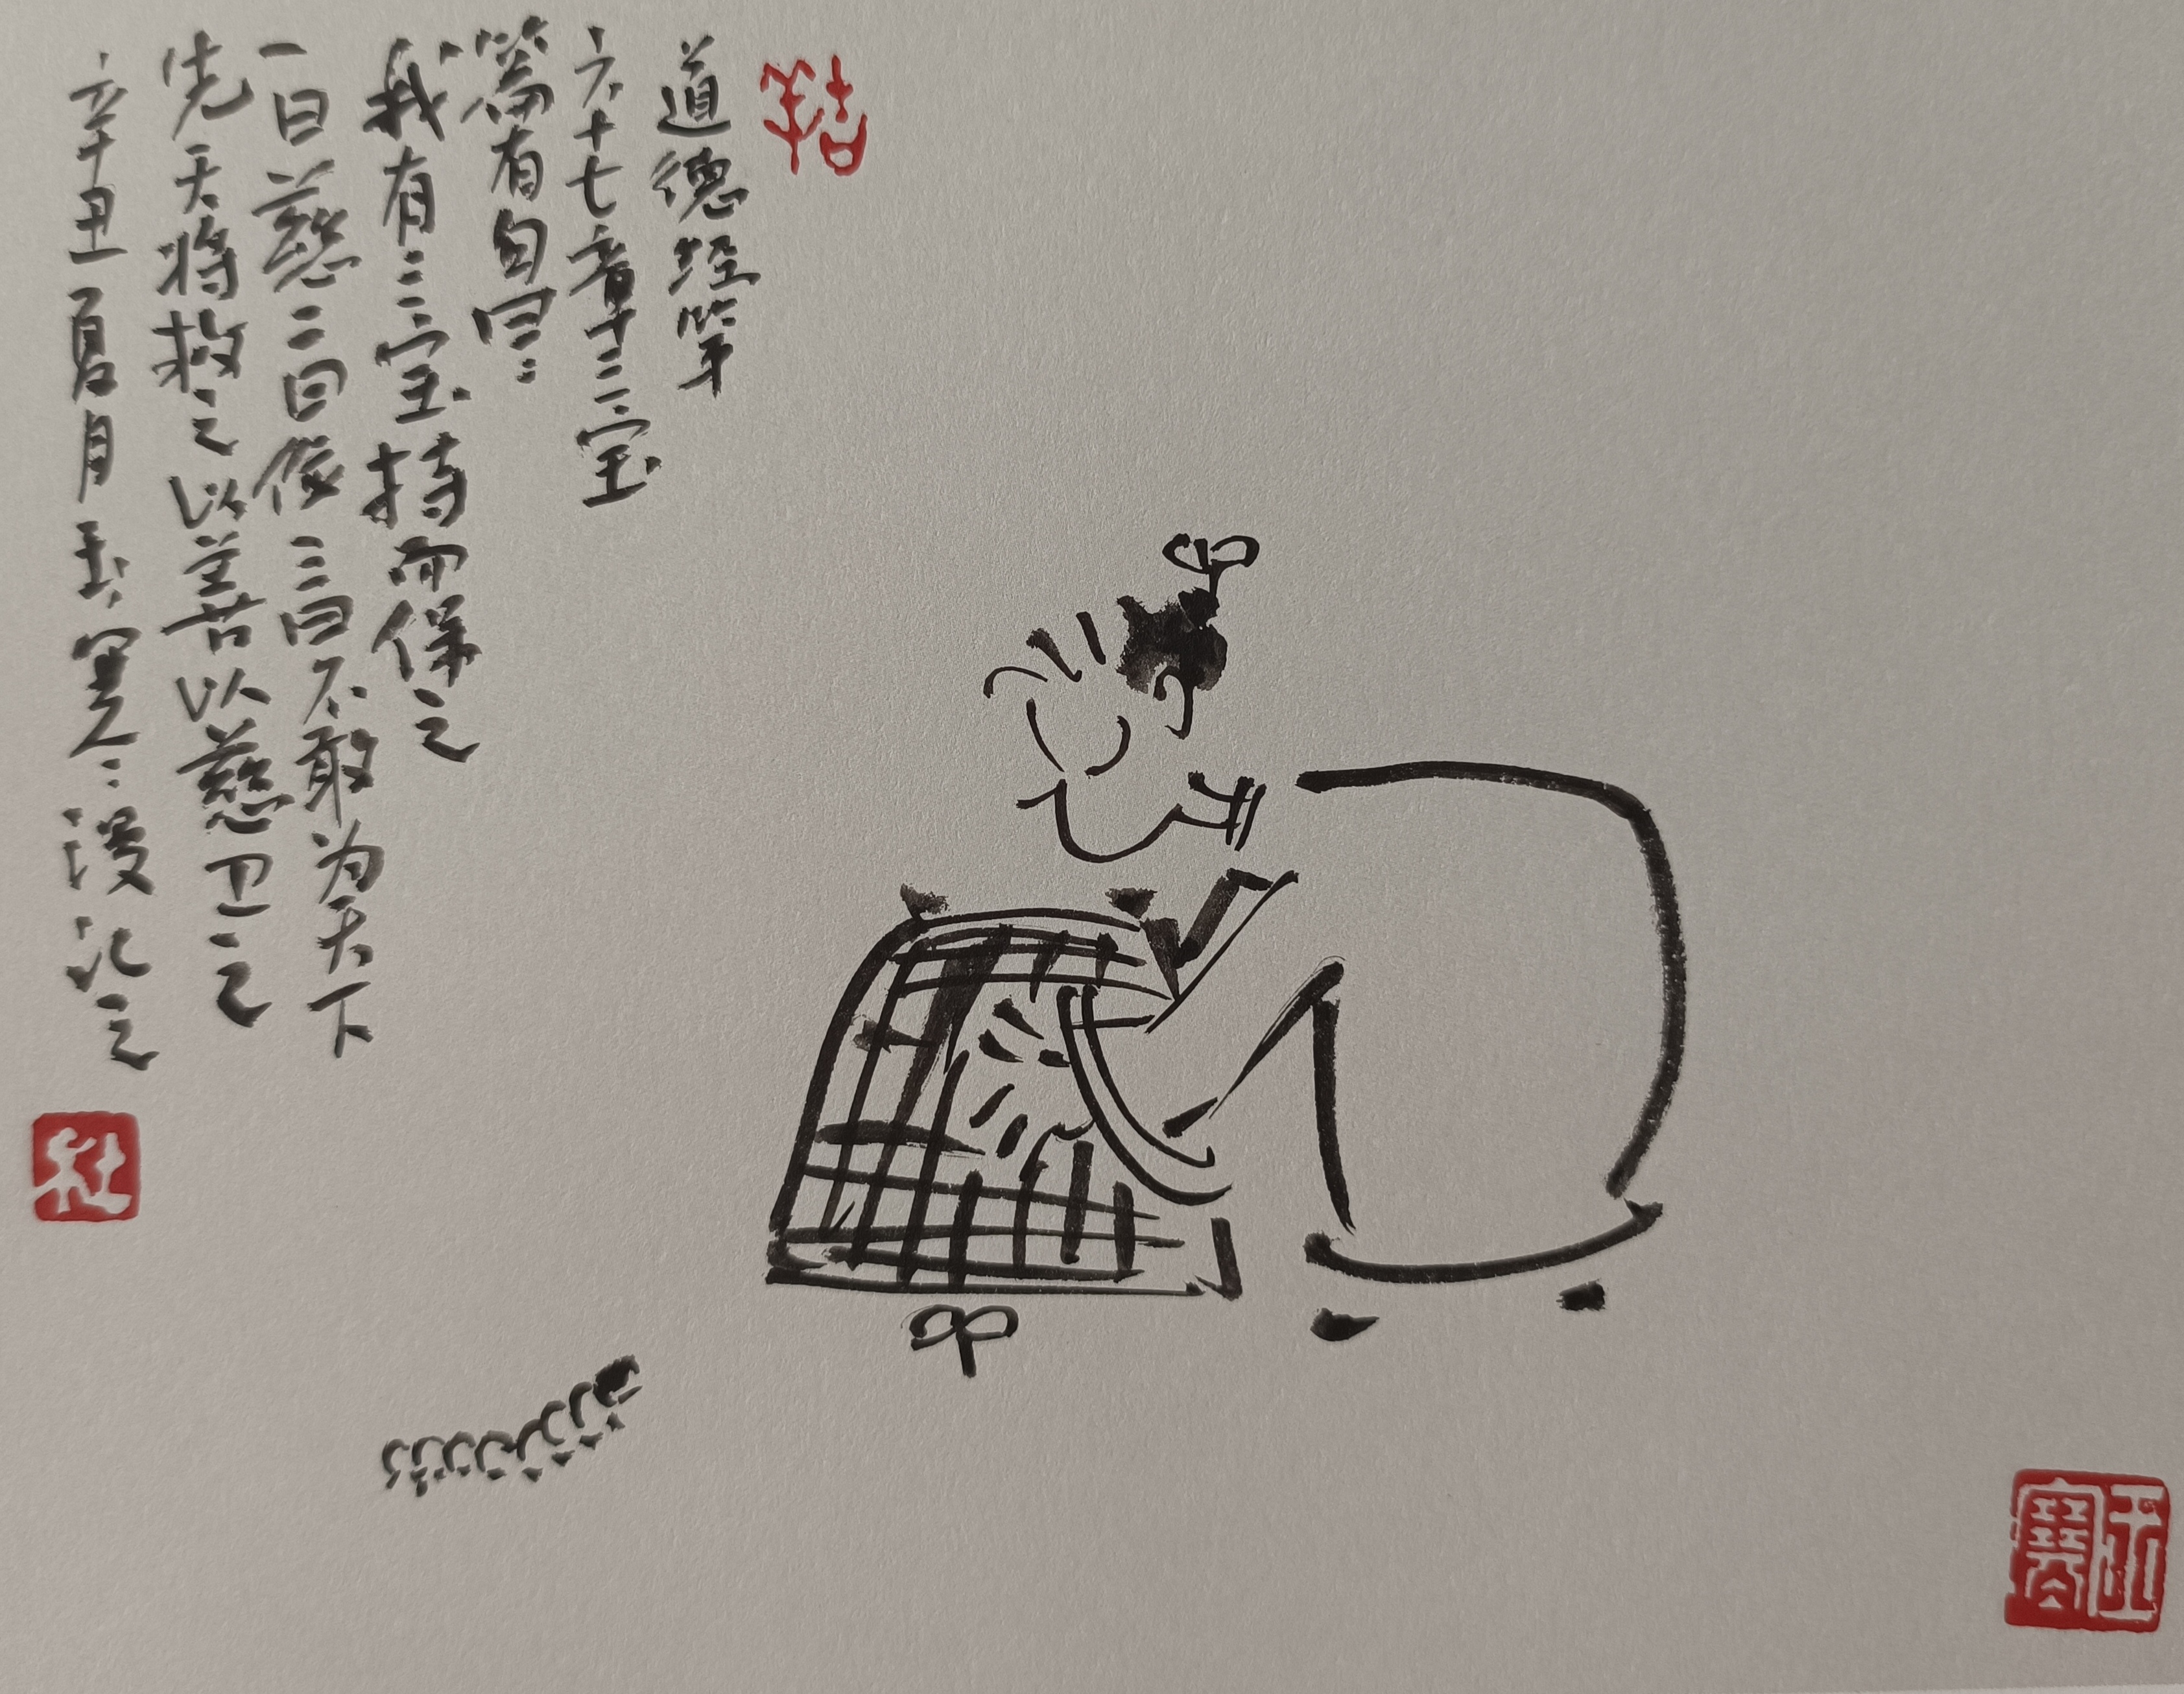 吉羊
道德经第
六十七章三宝
篇有句曰：
我有三宝持而保之
一曰慈二曰俭三曰不敢为天下
先天将救之以善以慈卫之
辛丑夏月玉漫记之